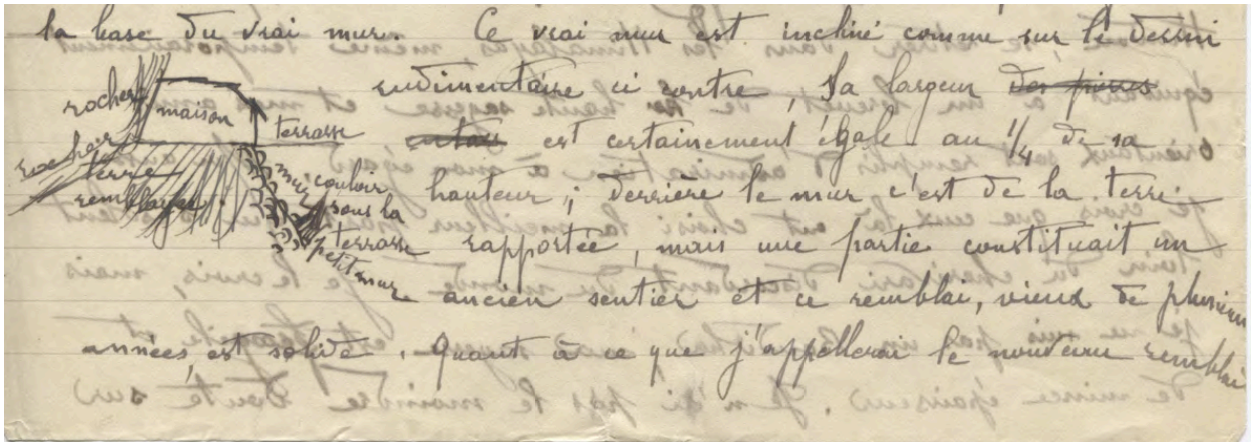 la base du vrai mur. Ce vrai mur est incliné comme sur le dessin
rudimentaire ci contre, sa largeur des pierres
est certainement égale au 1/4 de sa
hauteur ; derrière le mur c'est de la terre
rapportée, mais une partie constituait un
ancien sentier et ce remblai, vieux de plusieurs
années, est solide. Quant à ce que j'appellerai le nouveau remblai
rocher
maison
terrasse
rocher
terre
remblayée
mur
couloir
sous la
terrasse
petit mur